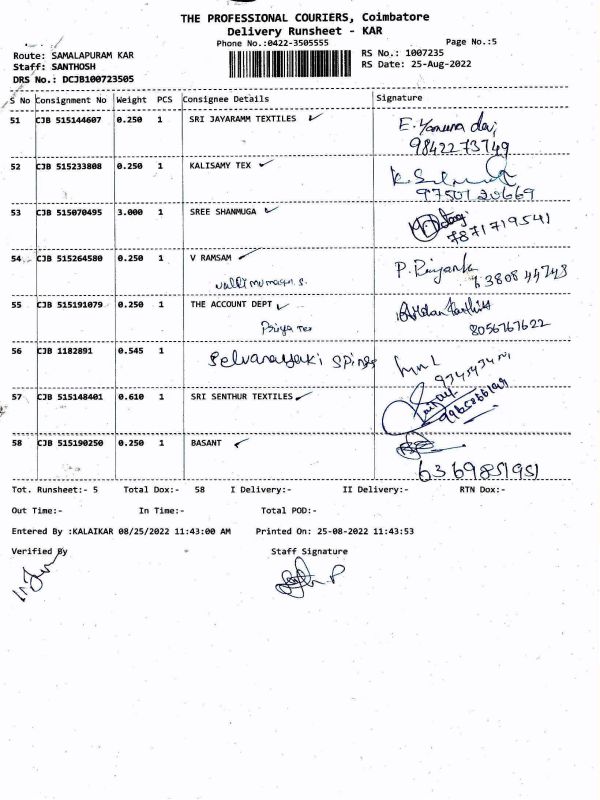 THE PROFESSIONAL COURIERS, Coimbatore
Delivery Runsheet - KAR
Phone No.:0422-3505555
Page No.:5
Route: SAMALAPURAM KAR
RS No.: 1007235
Staff: SANTHOSH
RS Date: 25-Aug-2022
DRS No.: DCJB100723505
S No Consignment No Weight PCS Consignee Details Signature
51 CJB 515144607 0.250 1 SRI JAYARAMM TEXTILES ✓ E. Yamuna devi
9842273749
52 CJB 515233808 0.250 1 KALISAMY TEX ✓
9750120669
53 CJB 515070495 3.000 1 SREE SHANMUGA ✓
7871719541
54 CJB 515264580 0.250 1 V RAMSAM ✓ P. Priyanka
6380844743
55 CJB 515191079 0.250 1 THE ACCOUNT DEPT ✓
Priya Tex 8056767622
56 CJB 1182891 0.545 1 Selvanayaki Spings
57 CJB 515148401 0.610 1 SRI SENTHUR TEXTILES ✓
58 CJB 515190250 0.250 1 BASANT ✓
6369851951
Tot. Runsheet:- 5 Total Dox:- 58 I Delivery:- II Delivery:- RTN Dox:-
Out Time:- In Time:- Total POD:-
Entered By :KALAIKAR 08/25/2022 11:43:00 AM Printed On: 25-08-2022 11:43:53
Verified By Staff Signature